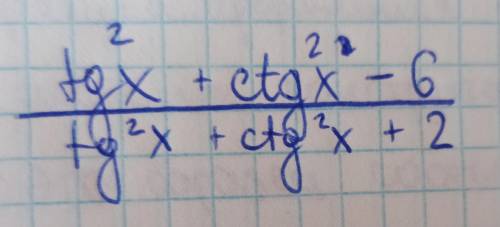 tg²x + ctg²x - 6
tg²x + ctg²x + 2